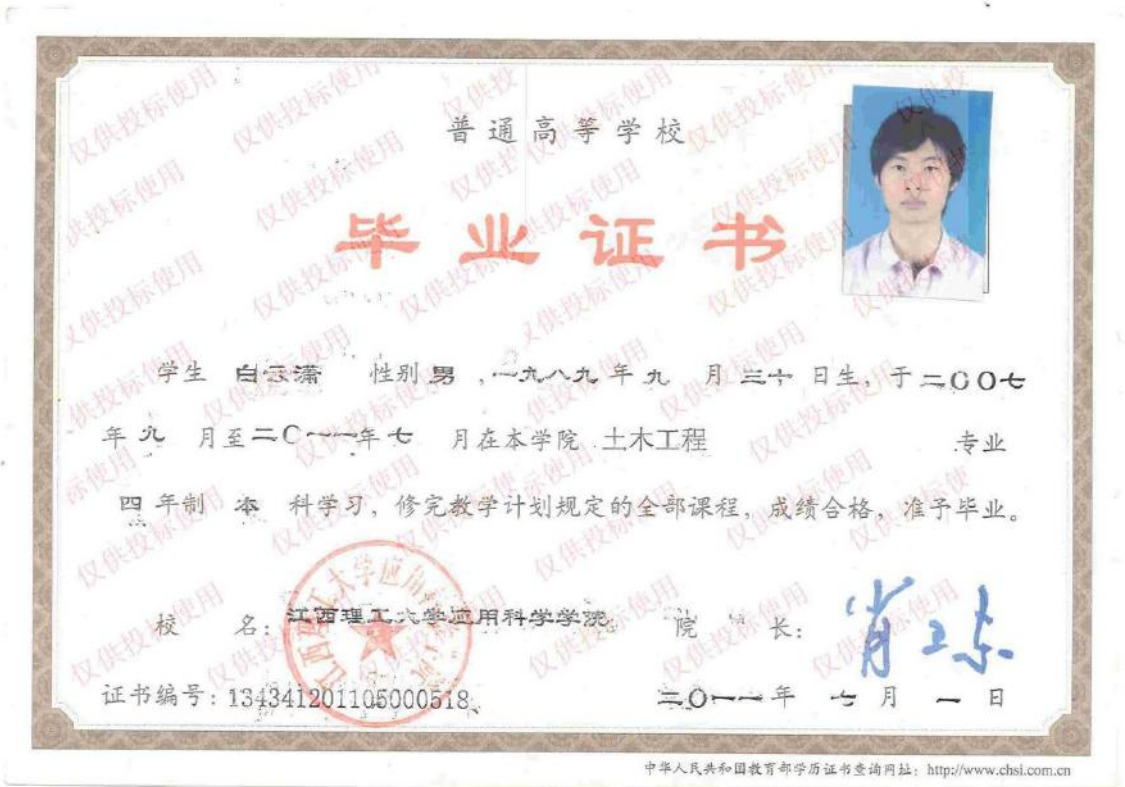 普通高等学校
毕业证书
学生 白云潇 性别 男 ,一九八九年九 月三十日生,于二〇〇七
年九 月至二〇一一年七 月在本学院 土木工程 专业
四年制 本 科学习,修完教学计划规定的全部课程,成绩合格,准予毕业。
校 名:江西理工大学应用科学学院 院 长:
证书编号:134341201105000518 二〇一一年 七月 一日
中华人民共和国教育部学历证书查询网址:http://www.chsi.com.cn
仅供投标使用